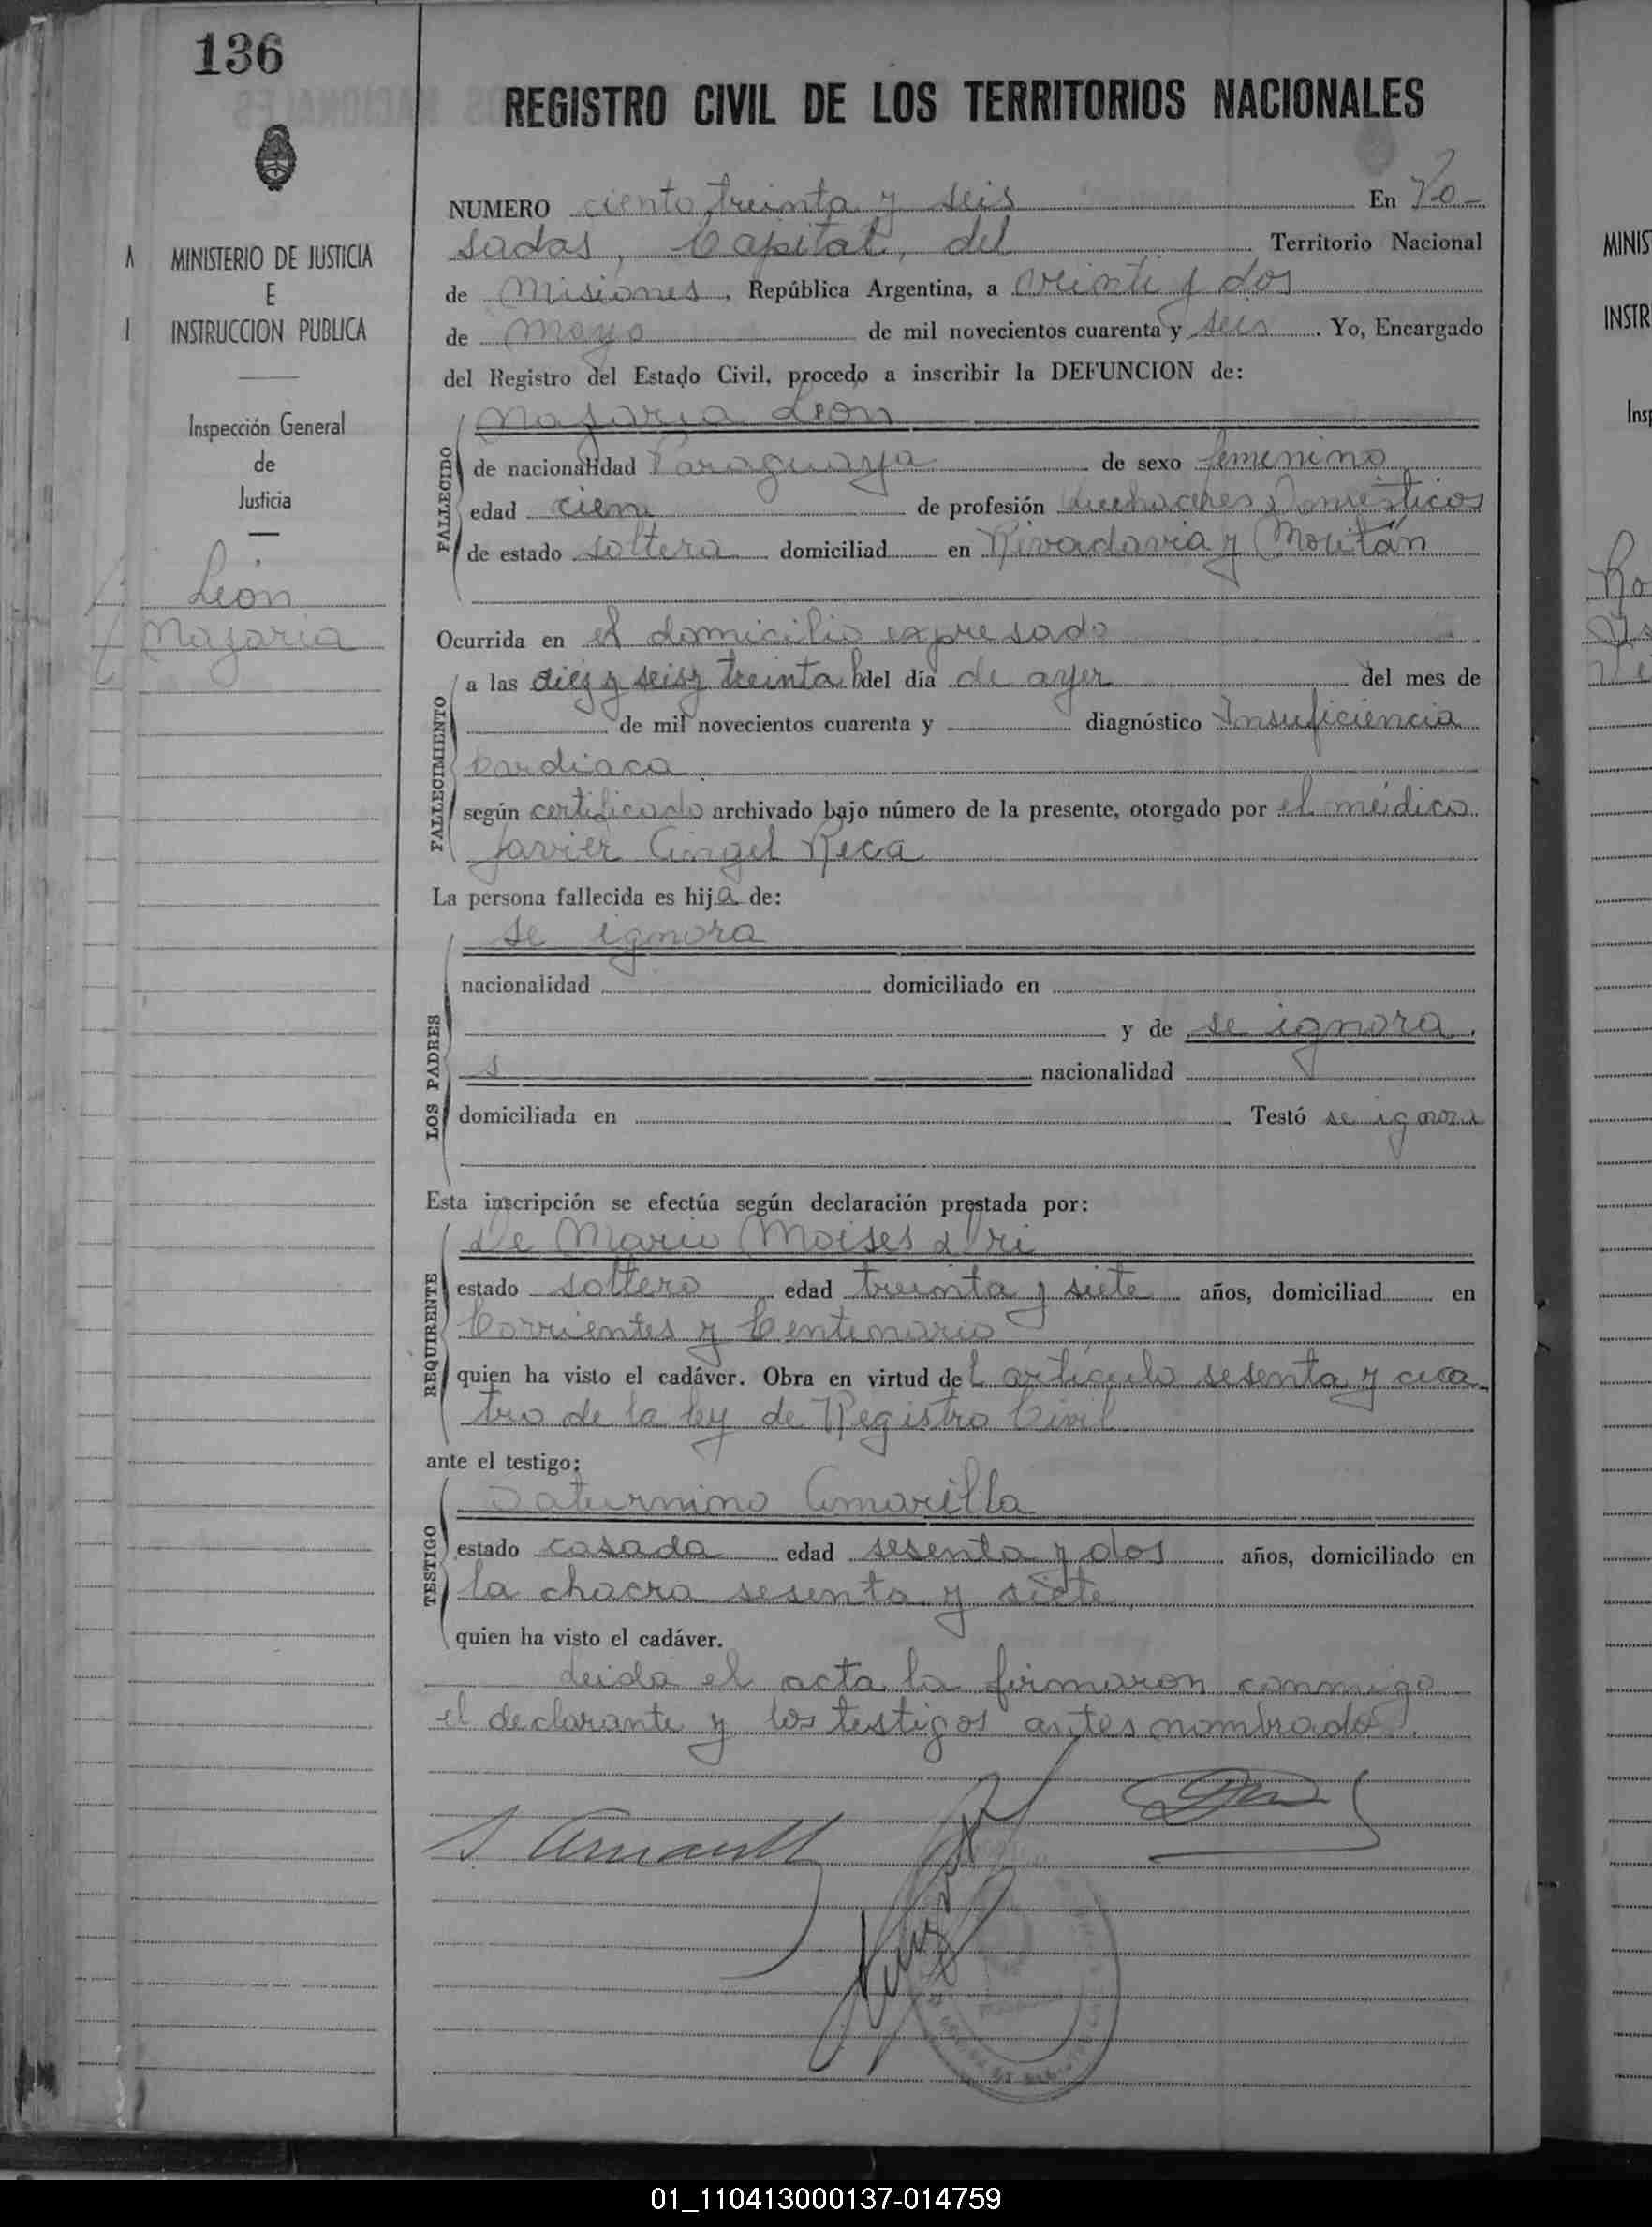 136
REGISTRO CIVIL DE LOS TERRITORIOS NACIONALES
MINISTERIO DE JUSTICIA
E
INSTRUCCION PUBLICA
Inspección General
de
Justicia
León
Nazaria
NUMERO ciento treinta y seis En Po-
sadas, Capital, del Territorio Nacional
de Misiones, República Argentina, a veinte y dos
de Mayo de mil novecientos cuarenta y seis. Yo, Encargado
del Registro del Estado Civil, procedo a inscribir la DEFUNCION de:
Nazaria León
FALLECIDO
de nacionalidad Paraguaya de sexo femenino
edad cien de profesión quehaceres Domésticos
de estado soltera domiciliad en Rivadavia y
Ocurrida en el domicilio expresado
FALLECIMIENTO
a las diez y seis y treinta h del día de ayer del mes de
de mil novecientos cuarenta y diagnóstico Insuficiencia
Cardiaca.
según certificado archivado bajo número de la presente, otorgado por el médico
Javier Angel Reca
La persona fallecida es hija de:
LOS PADRES
se ignora
nacionalidad domiciliado en
y de se ignora.
nacionalidad
domiciliada en Testó se ignora
Esta inscripción se efectúa según declaración prestada por:
REQUIRENTE
De Mario Moises
estado soltero edad treinta y siete años, domiciliad en
Corrientes y Centenario
quien ha visto el cadáver. Obra en virtud del articulo sesenta y cua-
tro de la ley de Registro Civil
ante el testigo:
TESTIGO
Saturnino Amarilla
estado casada edad sesenta y dos años, domiciliado en
la chacra sesenta y siete
quien ha visto el cadáver.
Leida el acta la firmaron conmigo
el declarante y los testigos antes nombrados.
MINIS
INSTR
Insp
01_110413000137-014759